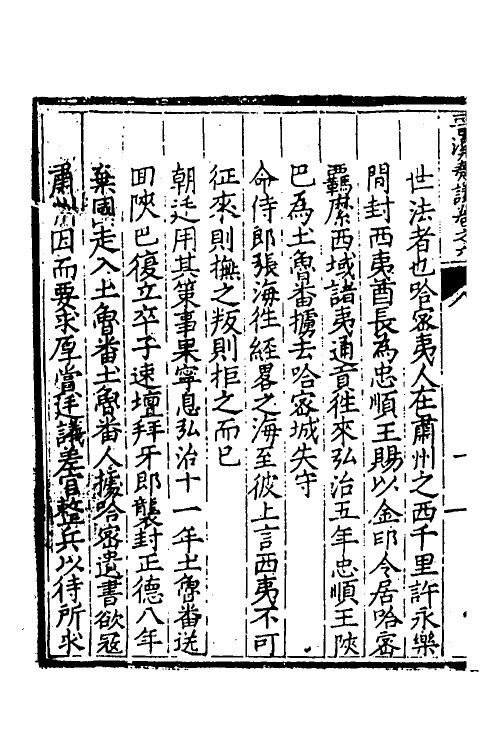 世法者也哈密夷人在肅州之西千里許永樂
間封西夷酋長為忠順王賜以金印令居哈密
羈縻西域諸夷通貢徃來弘治五年忠順王陝
巴為土魯番擄去哈密城失守
命侍郎張海徃經畧之海至彼上言西夷不可
征來則撫之叛則拒之而已
朝廷用其策事果寧息弘治十一年土魯番送
回陝巴復立卒子速壇拜牙郎襲封正德八年
棄國走入土魯番土魯番人據哈密遺書欲冦
肅州因而要求厚賞廷議差官整兵以待所求